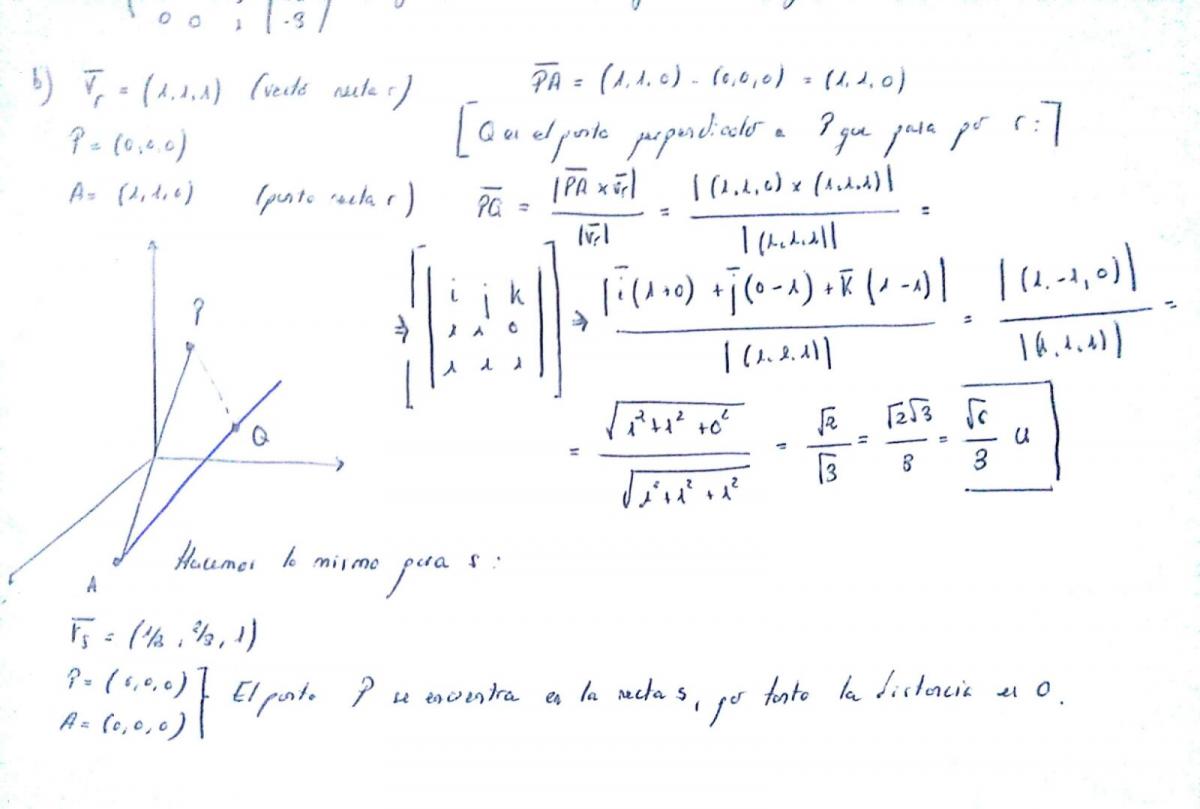 0 0 1 | -3
b) V̅r = (1,1,1) (vector recta r)
P̅A̅ = (1,1,0) - (0,0,0) = (1,1,0)
P = (0,0,0)
[Q es el punto perpendicular a P que pasa por r:]
A = (1,1,0) (punto recta r)
P̅Q̅ = |P̅A̅ x v̅r| / |v̅r| = |(1,1,0) x (1,1,1)| / |(1,1,1)| =
⇒ [ | i j k | 1 1 0 | 1 1 1 | ] ⇒ |i̅(1+0) + j̅(0-1) + k̅(1-1)| / |(1,1,1)| = |(1,-1,0)| / |(1,1,1)| =
= √(1²+1²+0²) / √(1²+1²+1²) = √2/√3 = √2√3/3 = √6/3 u
P
Q
A
Hacemos lo mismo para s:
V̅s = (1/3, 2/3, 1)
P = (0,0,0)
A = (0,0,0)
] El punto P se encuentra en la recta s, por tanto la distancia es 0.